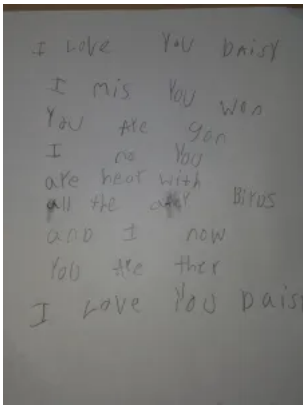 I Love You Daisy
I mis You wen
You are gon
I no You
are hear with
all the Birds
and I now
You are ther
I Love You Dais